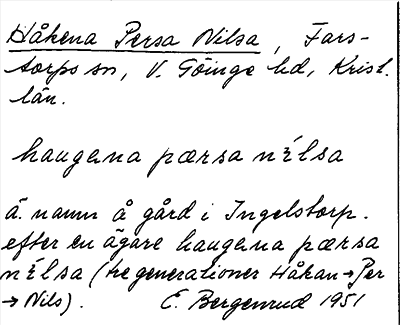 Håkena Persa Nilsa, Fars-
torps sn, V. Göinge hd, Krist.
län.
haugəna pærsa nílsa
ä. namn å gård i Ingelstorp.
efter en ägare haugəna pærsa
nílsa (tre generationer Håkan → Per
→ Nils). E. Bergenrud 1951